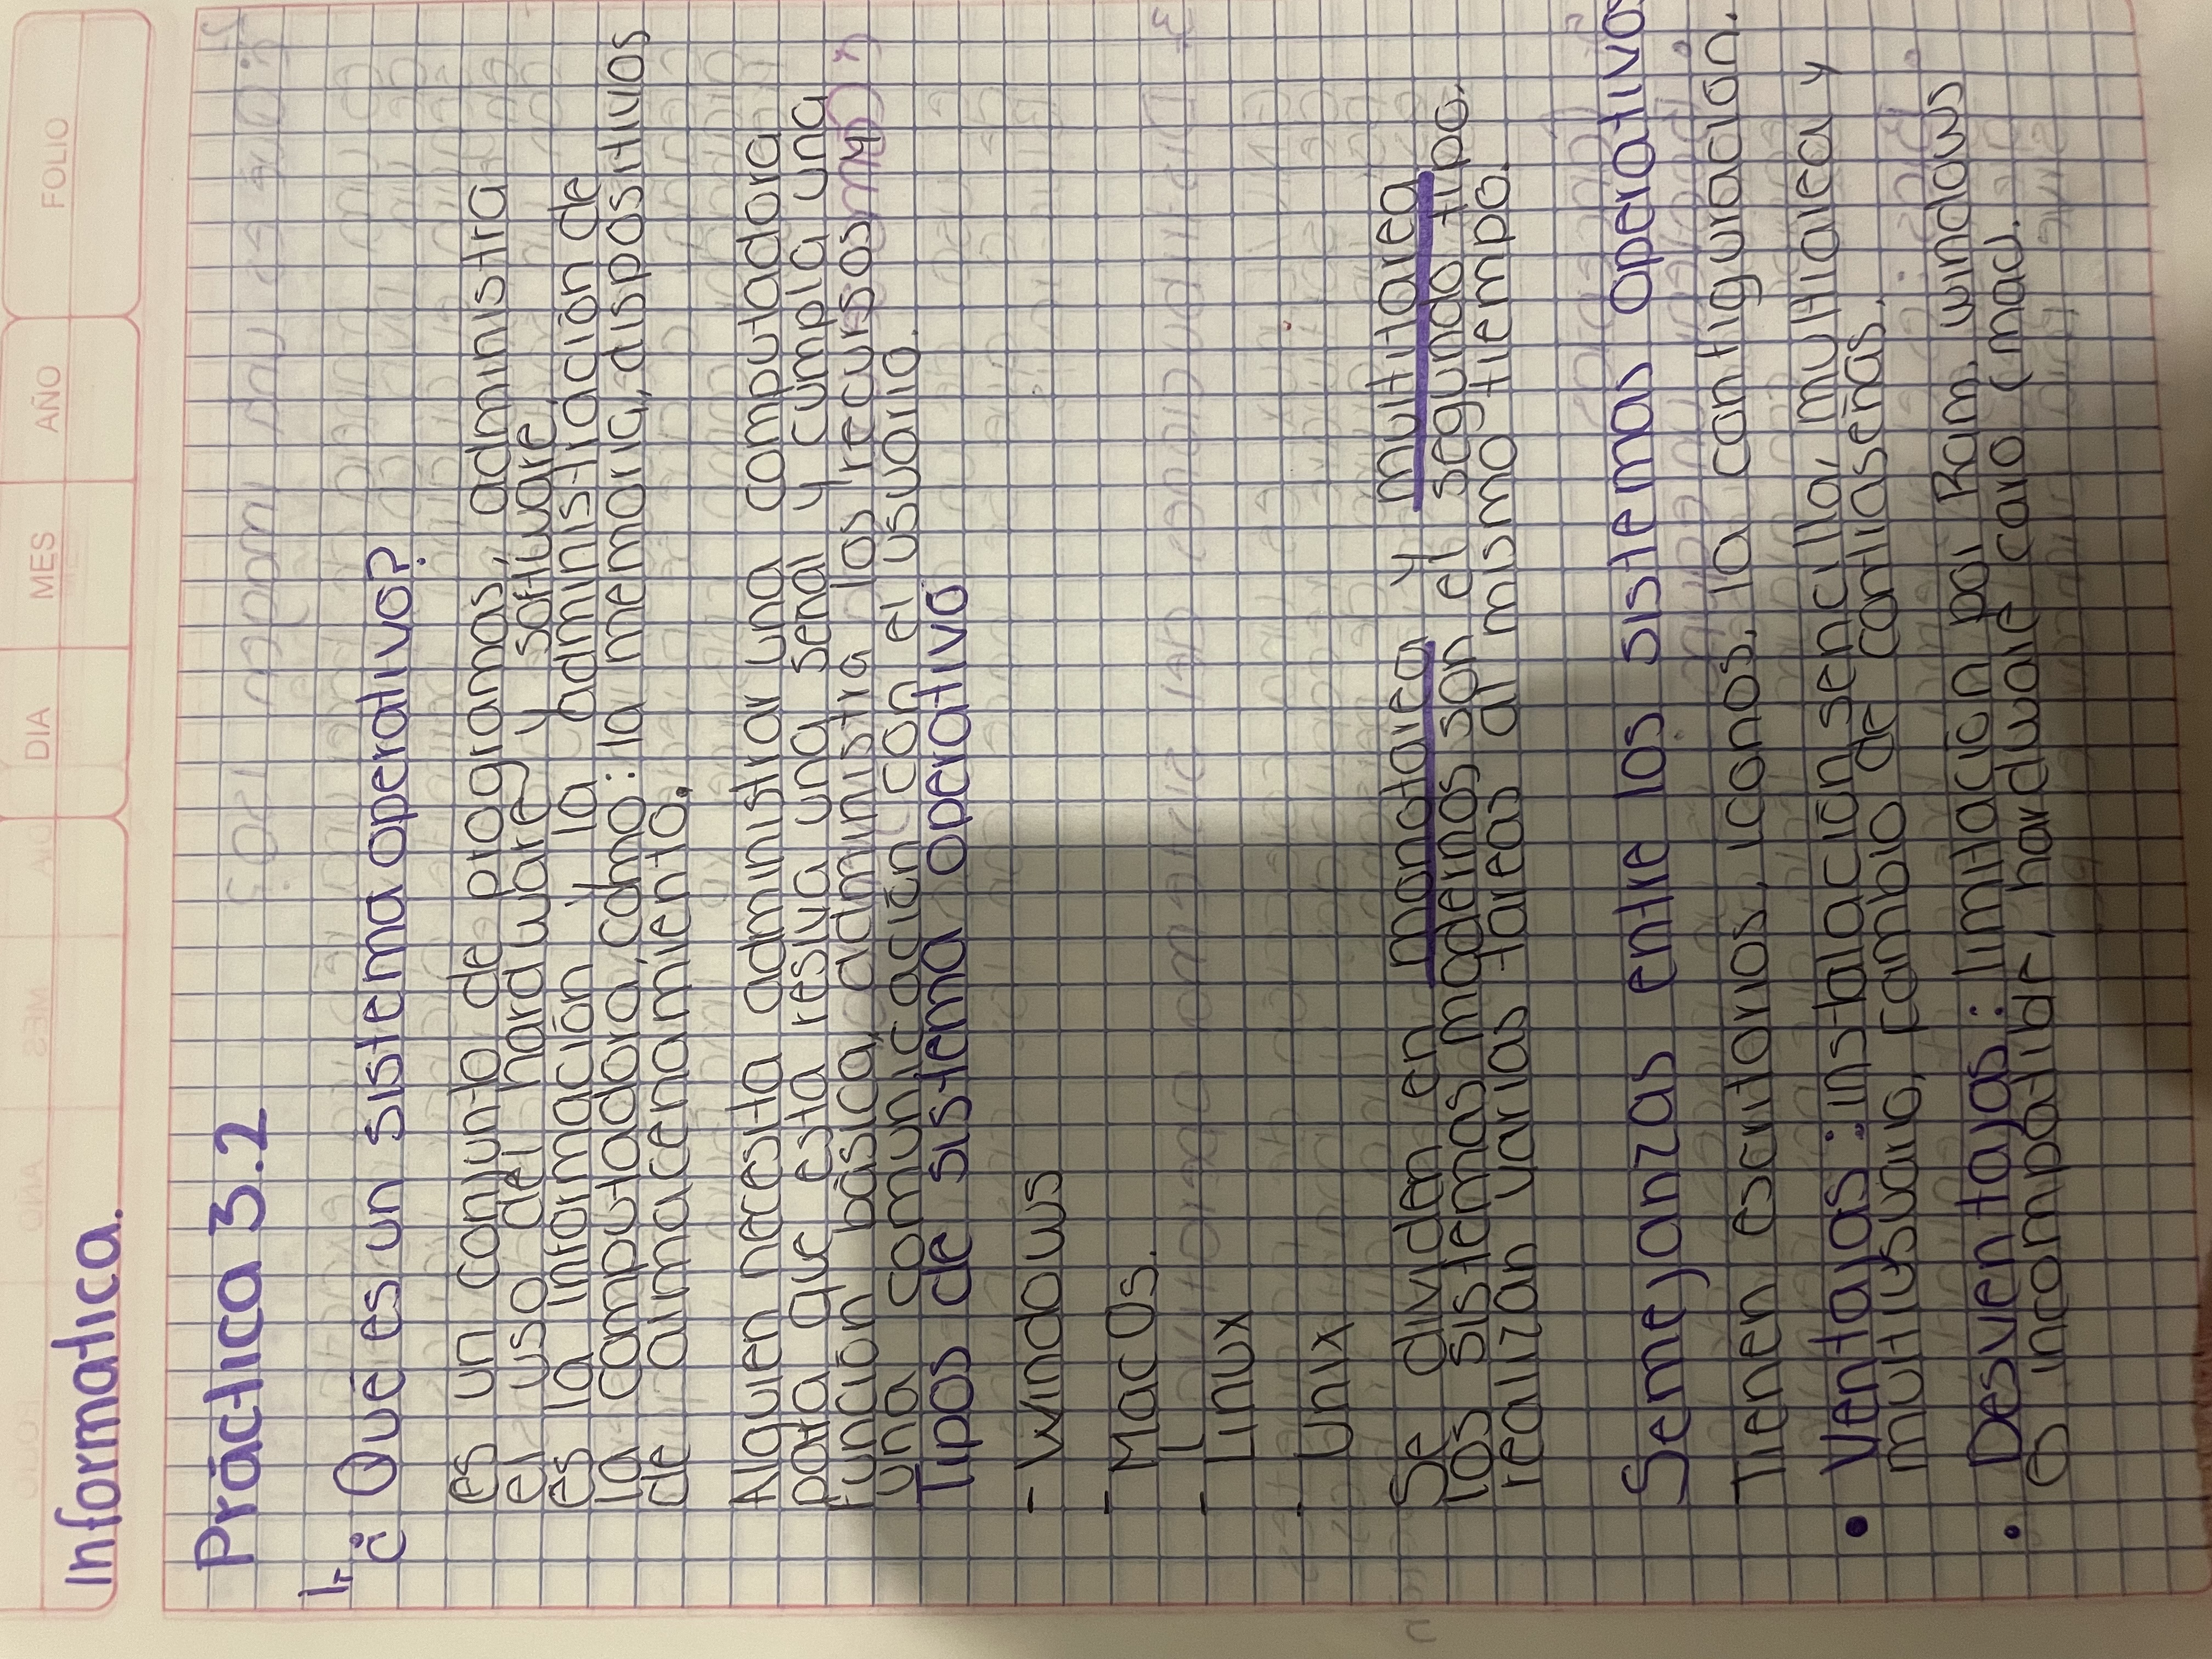 DIA MES AÑO FOLIO
Informatica.
Práctica 3.2
1.
¿Qué es un sistema operativo?
es un conjunto de programas, administra
el uso del hardware y software,
es la información y la administración de
la computadora, como: la memoria, dispositivos
de almacenamiento.
Alguien necesita administrar una computadora
para que esta resiva una señal y cumpla una
función básica, administra los recursos y
una comunicación con el usuario.
Tipos de sistema operativo
- Windows
- MacOs.
- Linux
- Unix
Se dividen en monotarea y multitarea
los sistemas modernos son el segundo tipo,
realizan varias tareas al mismo tiempo.
Semejanzas entre los sistemas operativos
Tienen escritorios, iconos, la configuración.
• Ventajas: instalación sencilla, multiarea y
multiusuario, cambio de contraseñas.
• Desventajas: limitación por Ram, windows
es incompatible, hardware caro (mac).